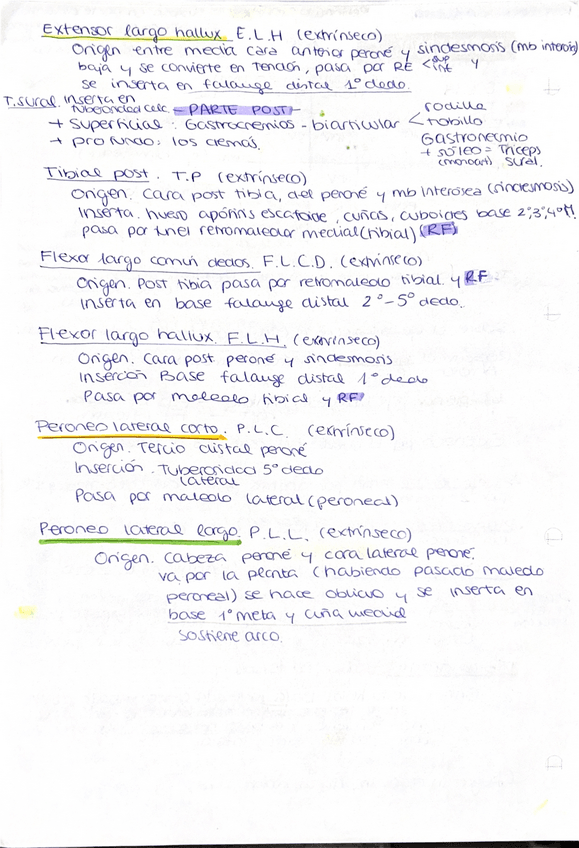 Extensor largo hallux. E.L.H (extrínseco)
Origen entre media cara anterior peroné y sindesmosis (mb interois)
baja y se convierte en Tendón, pasa por RE < sup inf y
se inserta en falange distal 1º dedo.
T. sural. Inserta en
tuberosidad calc. - PARTE POST -
+ Superficial: Gastrocnemios - biarticular < rodilla tobillo
+ profundo: los demás.
Gastrocnemio
+ sóleo = Triceps
(monoart) sural.
Tibial post. T.P (extrínseco)
Origen. Cara post tibia, del peroné y mb Interósea (sindesmosis)
Inserta. hueso escafoide, cuñas, cuboides base 2º,3º,4º M.
pasa por tunel retromaleolar medial (tibial) (RF)
Flexor largo común dedos. F.L.C.D. (extrínseco)
Origen. Post tibia pasa por retromaleolo tibial y RF.
Inserta en base falange distal 2º-5º dedo.
Flexor largo hallux. F.L.H. (extrínseco)
Origen. Cara post peroné y sindesmosis
Inserción Base falange distal 1º dedo
Pasa por maleolo tibial y RF
Peroneo lateral corto. P.L.C. (extrínseco)
Origen. Tercio distal peroné
Inserción. Tuberosidad 5º dedo
lateral
Pasa por maleolo lateral (peroneal)
Peroneo lateral largo. P.L.L. (extrínseco)
Origen. Cabeza peroné y cara lateral peroné.
va por la planta (habiendo pasado maleolo
peroneal) se hace oblicuo y se inserta en
base 1º meta y cuña medial
Sostiene arco.